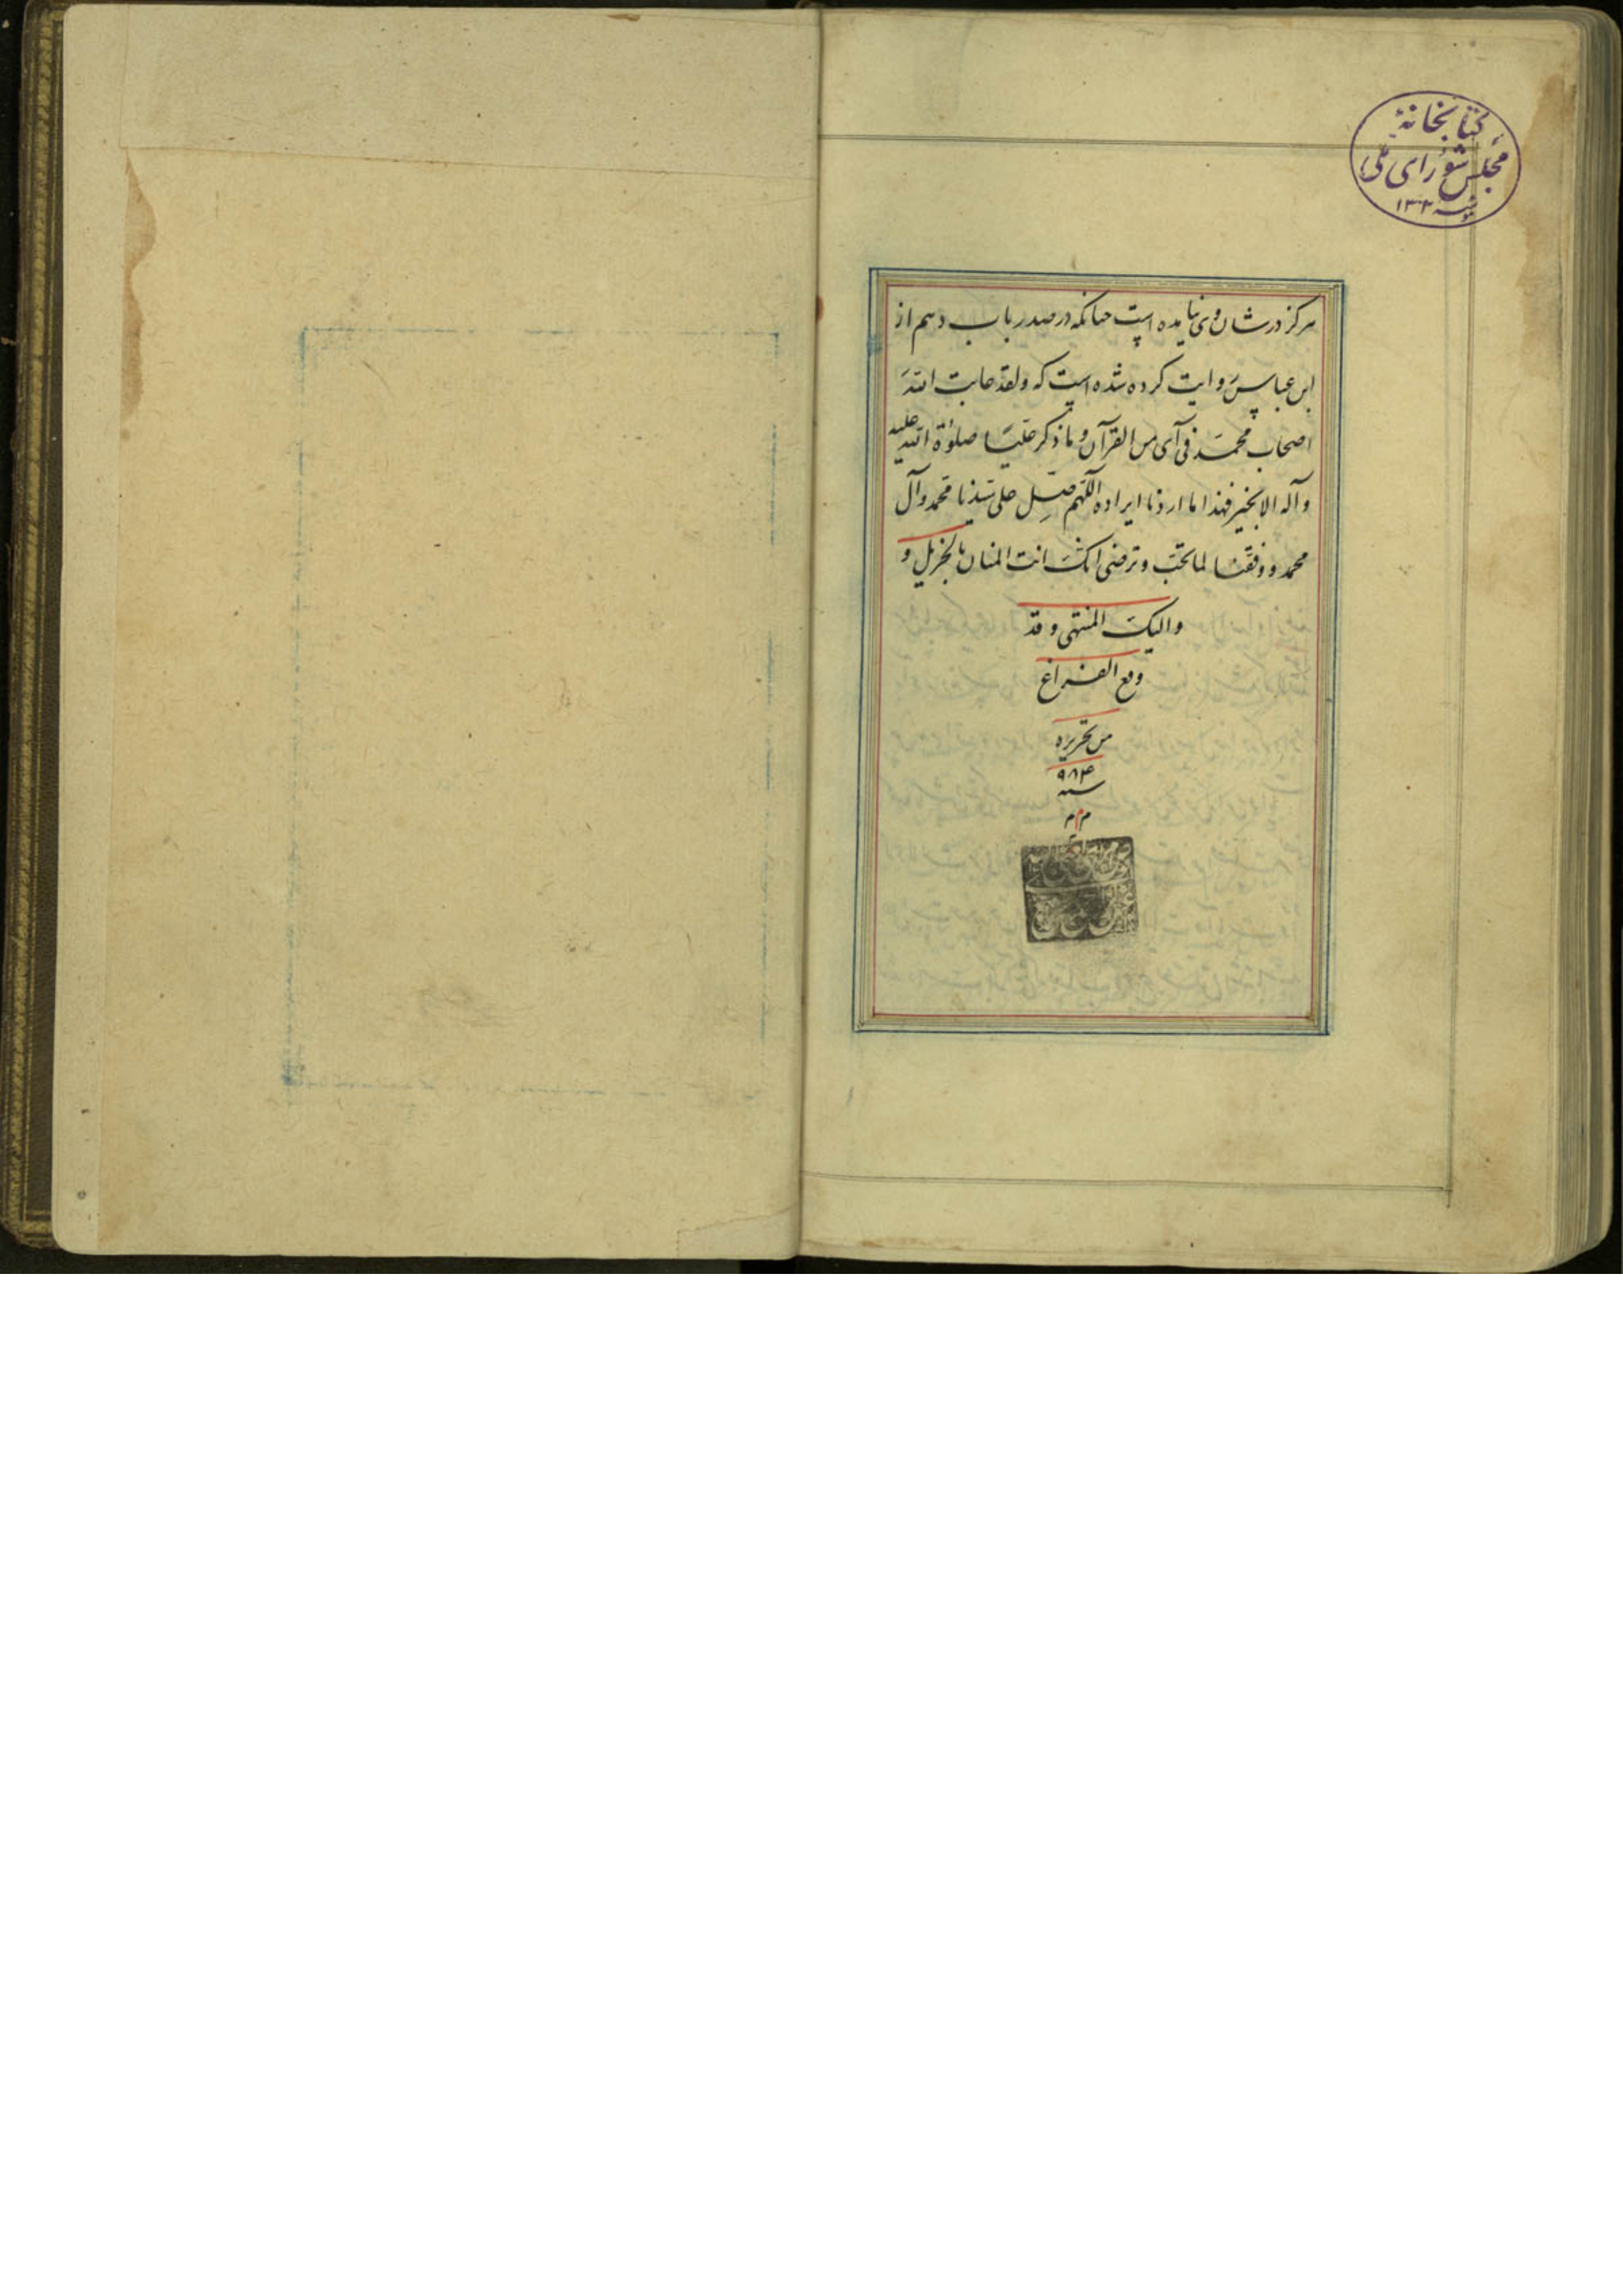 کتابخانهٔ
مجلس شورای ملی
۱۳۰۲
هرکز درشان وی نیامده است چنانکه در صدر باب دهم از
ابن عباس روایت کرده شده است که ولقد عاتب الله
اصحاب محمد فی آی من القرآن و ما ذکر علیّا صلوة الله علیه
وآله الا بخیر فهذا ما اردنا ایراده اللّهم صلِّ علی سیّدنا محمد وآل
محمد و وفقنا لما تحبّ وترضی انک انت المنان بالجزیل و
والیک المنتهی وقد
وقع الفراغ
من تحریره
سنه ۹۸۴
م م م